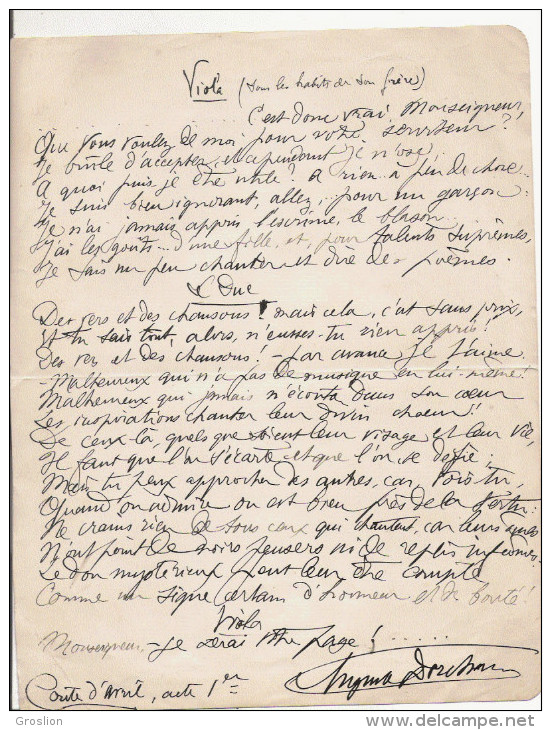 Viola (sous les habits de son frère)
C'est donc vrai, Monseigneur,
Que vous voulez de moi pour votre serviteur ?
Je brûle d'accepter, et cependant je n'ose,
A quoi puis-je être utile ? A rien.. à peu de chose...
Je suis bien ignorant, allez, pour un garçon.
Je n'ai jamais appris l'escrime, le blason...
J'ai les goûts.. d'une fille, et, pour talents suprêmes,
Je sais un peu chanter et dire des poèmes.
Le Duc
Des vers et des chansons ! mais cela, c'est sans prix,
Et tu sais tout, alors, n'eusses-tu rien appris !
Des vers et des chansons ! - Par avance je t'aime
- Malheureux qui n'a pas de musique en lui-même !
Malheureux qui jamais n'écouta dans son cœur
Les inspirations chanter leur divin chœur !
De ceux-là, quels que soient leur visage et leur vie,
Il faut que l'on s'écarte et que l'on se défie ;
Mais tu peux approcher des autres, car, vois-tu,
Quand on admire on est bien près de la vertu.
Ne crains rien de tous ceux qui chantent, car leurs âmes
N'ont point de noirs pensers ni de replis infâmes.
Le don mystérieux peut leur être compté
Comme un signe certain d'honneur et de bonté !
Viola
Monseigneur, - je serai votre page ! .....
Conte d'avril, acte 1er
Auguste Dorchain
Groslion
http://www.delcampe.net